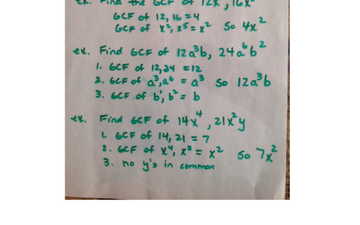 ex. Find the GCF of 12x , 16x
GCF of 12, 16 = 4
GCF of x⁴, x⁵ = x² so 4x²
ex. Find GCF of 12a³b, 24a⁶b²
1. GCF of 12, 24 = 12
2. GCF of a³, a⁶ = a³ so 12a³b
3. GCF of b', b² = b
ex. Find GCF of 14x⁴, 21x²y
1. GCF of 14, 21 = 7
2. GCF of x⁴, x² = x² so 7x²
3. no y's in common